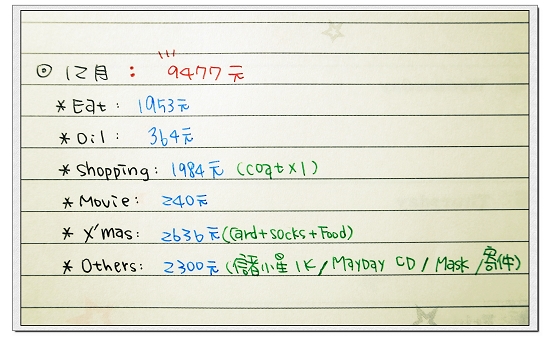 ◎ 12月 : 9477元
* Eat : 1953元
* Oil : 364元
* Shopping : 1984元 (coat x 1)
* Movie : 240元
* X'mas : 2636元 (Card + socks + Food)
* Others : 2300元 (儲小星 1K / MAYDAY CD / Mask / 寄件)